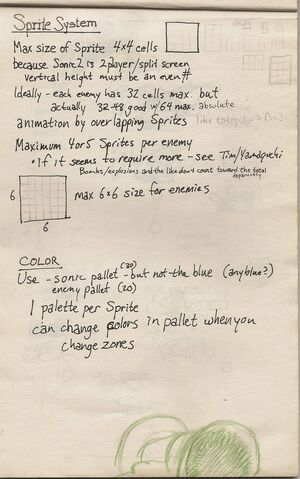 Sprite System
Max size of Sprite 4x4 cells
because Sonic2 is 2player/split screen
vertical height must be an even #
Ideally - each enemy has 32 cells max. but
actually 32-48 good w/64 max. absolute
animation by overlapping Sprites
Maximum 4or5 Sprites per enemy
• if it seems to require more - see Tim/Yamaguchi
Bombs/explosions and the like don't count toward the total
apparently
6
max 6x6 size for enemies
6
COLOR
Use - sonic pallet - but not the blue (any blue?)
enemy pallet
1 palette per Sprite
can change colors in pallet when you
change zones